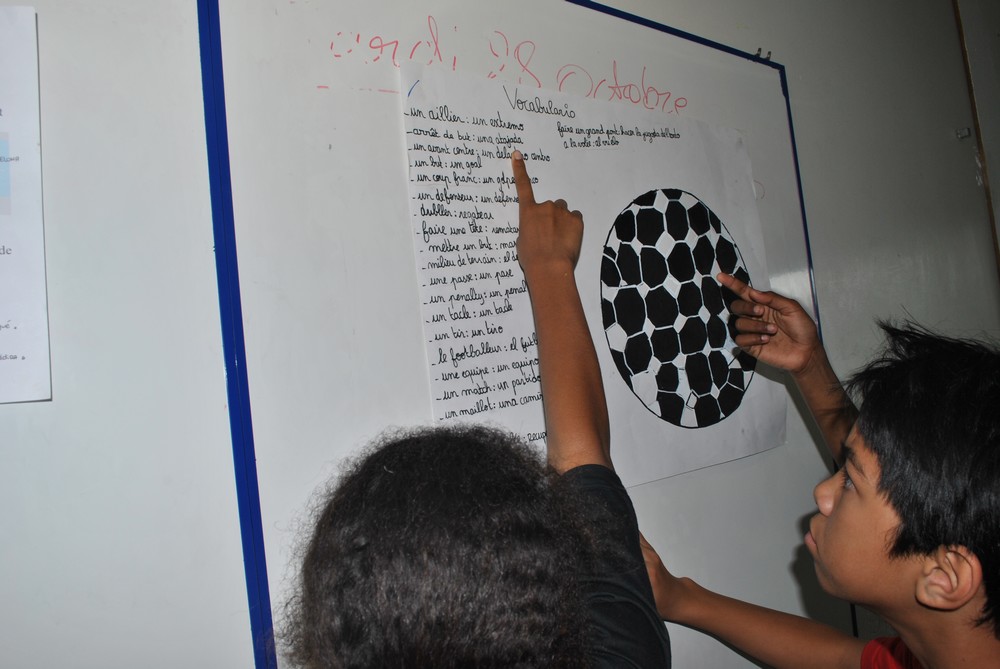 ardi 08 Octobre
Vocabulario
- un aillier : un extremo
- arrêt de but : una atajada
- un avant centre : un centro
- un but : um goal
- un coup franc : un golpe
- un défenseur : un defens
- dribller : regatear
- faire une tête : remata
- mettre un but : ma
- milieu de terrain : el de
- une passe : un pase
- un penalty : un penal
- un tacle : un tacle
- un tir : un tiro
- le footballeur : el futb
- une equipe : un equipo
- un match : un partido
- un maillot : una cami
recup
faire un grand pont : hacer la jugada del bobo
a la volé : al vuelo
de